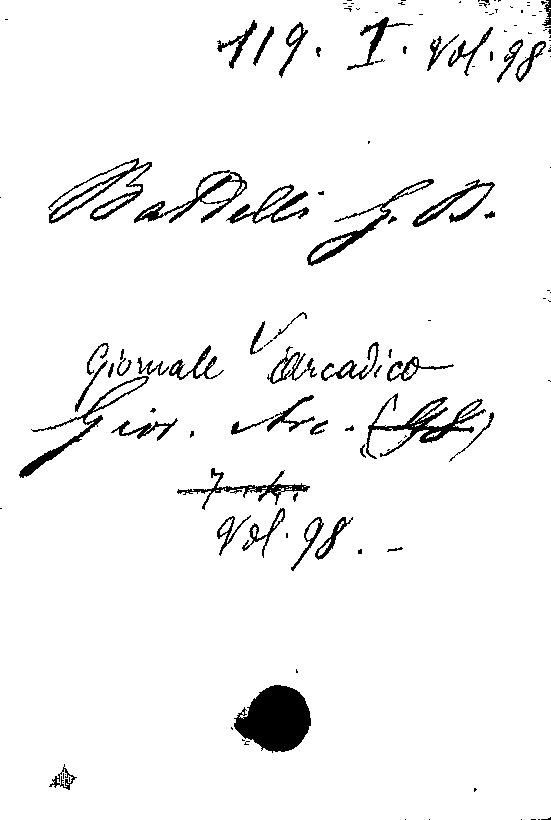 119. I. Vol. 98
Baddelli G. B.
Giornale Arcadico
Gior. Arc. (98)
Vol. 98. -